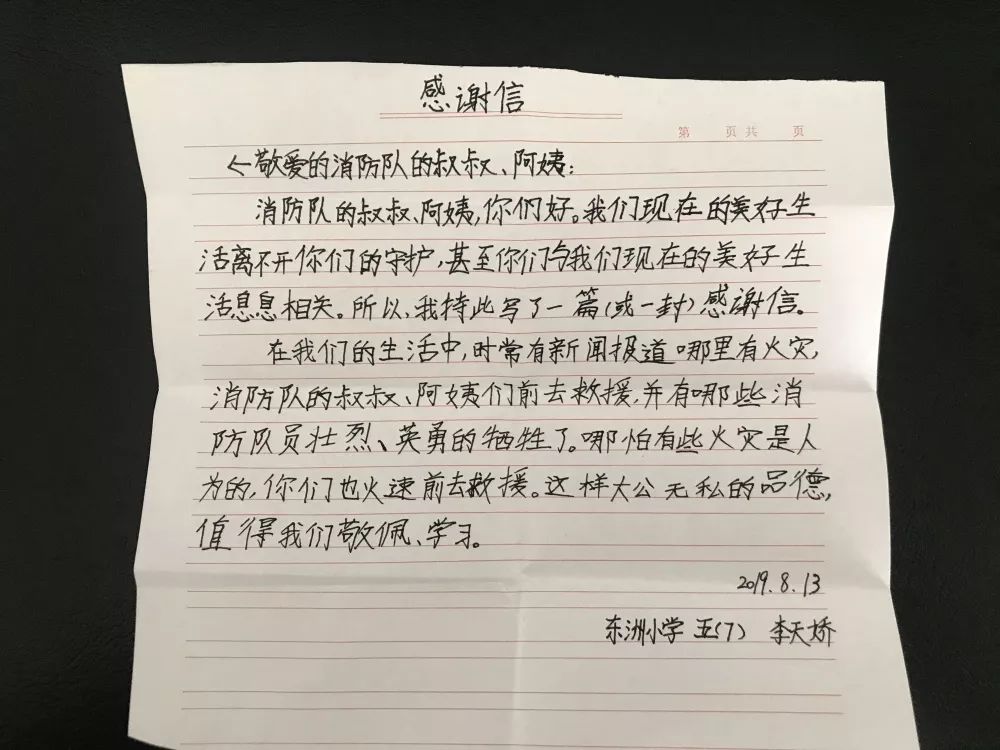 感谢信
第 页 共 页
←敬爱的消防队的叔叔、阿姨:
消防队的叔叔、阿姨,你们好。我们现在的美好生
活离不开你们的守护,甚至你们与我们现在的美好生
活息息相关。所以,我持此写了一篇(或一封)感谢信。
在我们的生活中,时常有新闻报道哪里有火灾,
消防队的叔叔、阿姨们前去救援,并有哪些消
防队员壮烈、英勇的牺牲了。哪怕有些火灾是人
为的,你们也火速前去救援。这样大公无私的品德,
值得我们敬佩、学习。
2019.8.13
东洲小学 五(7) 李天娇